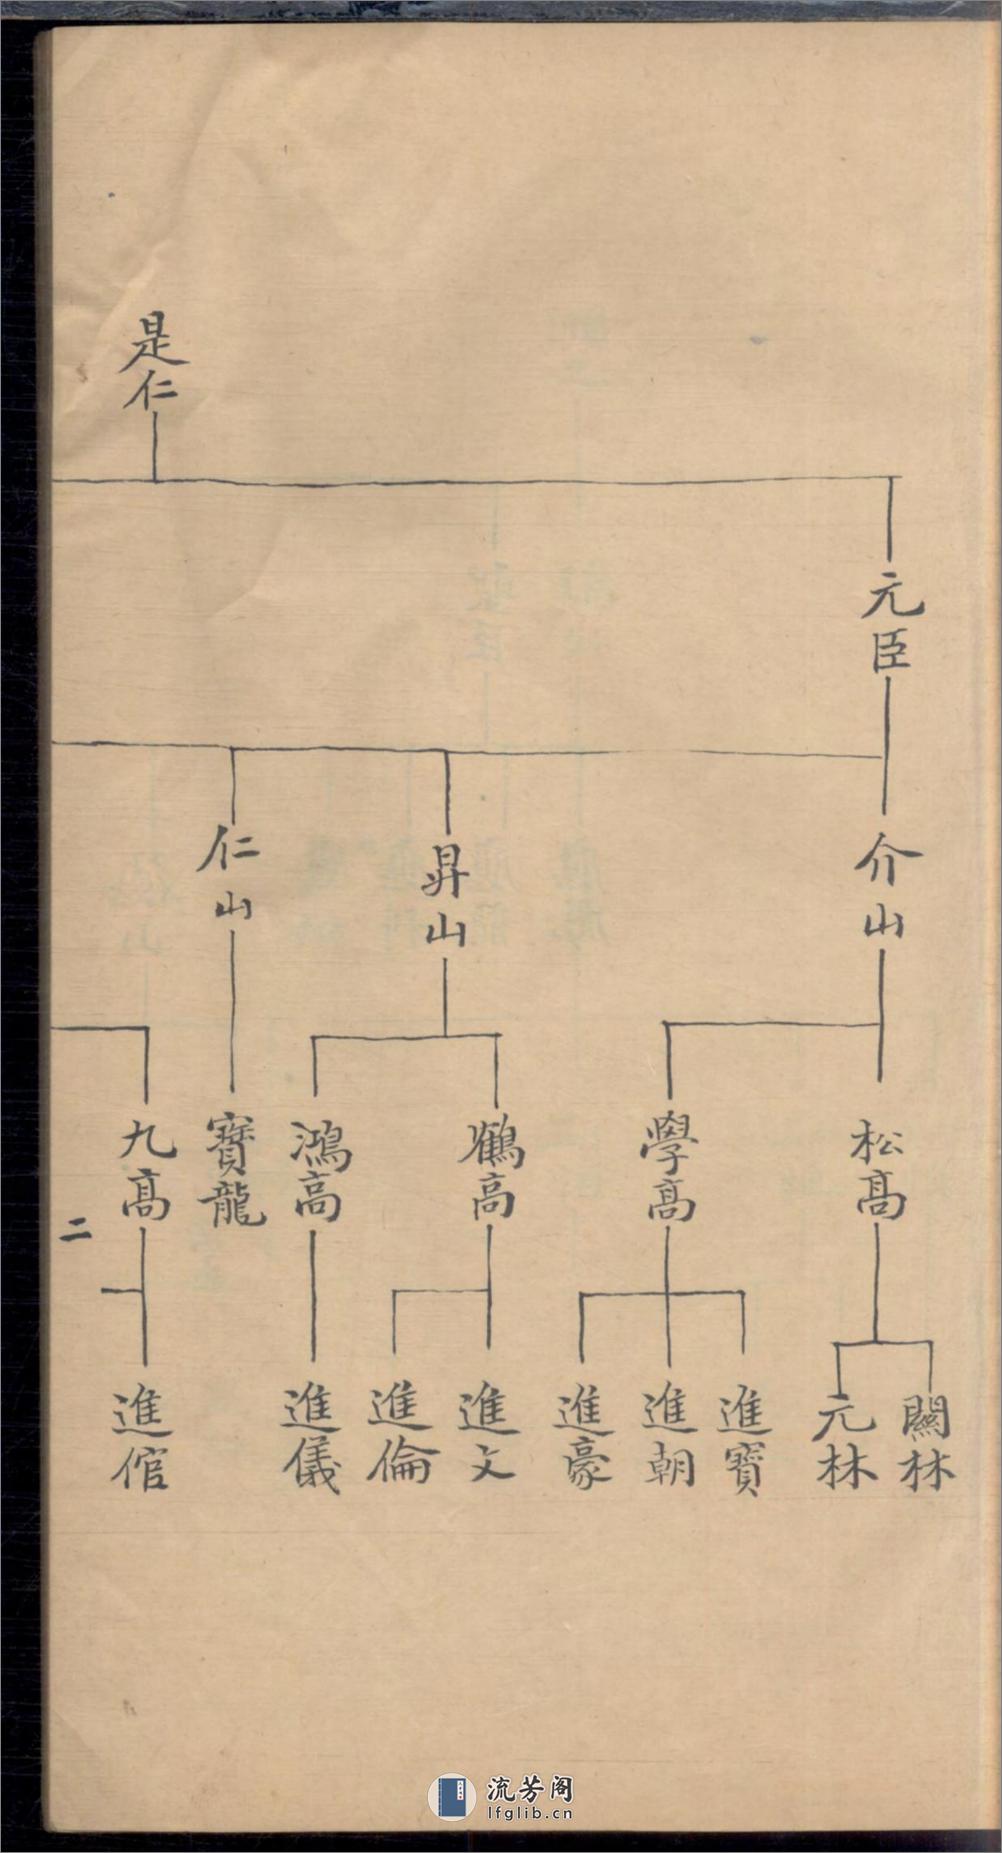 是仁
元臣
介山
昇山
仁山
松髙
學髙
鶴高
鴻高
寶龍
九髙
關林
元林
進寶
進朝
進豪
進文
進倫
進儀
進倌
二
流芳阁
lfglib.cn